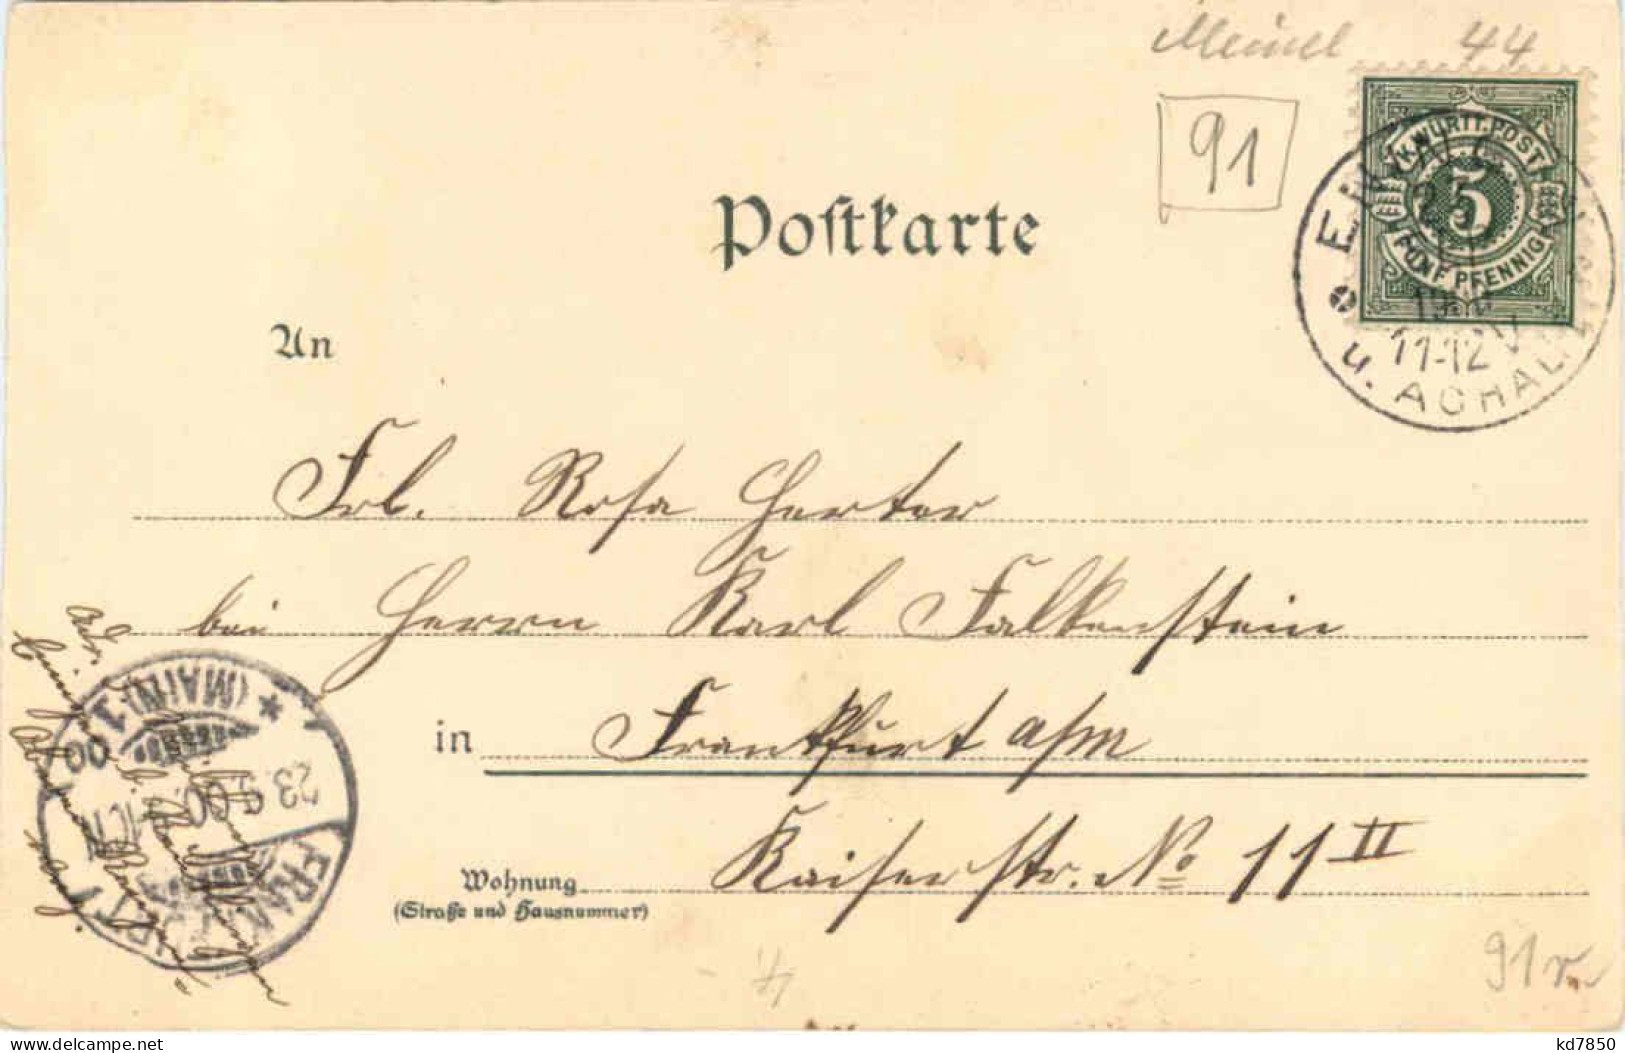 Meinel 44
91
K. WÜRTT. POST
5
FÜNF PFENNIG
11-12 V
u. ACHALM
Postkarte
An
Frl. Rosa Herter
bei Herrn Karl Falkenstein
in Frankfurt a/m
Kaiserstr. No 11 II
Wohnung
(Straße und Hausnummer)
FRANKFURT
* (MAIN). 1
23.9.00
91
delcampe.net
kd7850